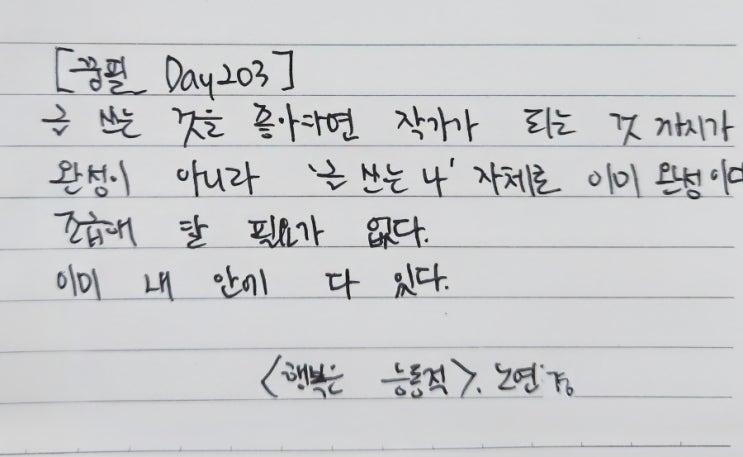 [꿈필 Day203]
글 쓰는 것을 좋아하면 작가가 되는 것 까지가
완성이 아니라 '글 쓰는 나' 자체로 이미 완성이다
조급해 할 필요가 없다.
이미 내 안에 다 있다.
<행복은 능동적>, 노연경